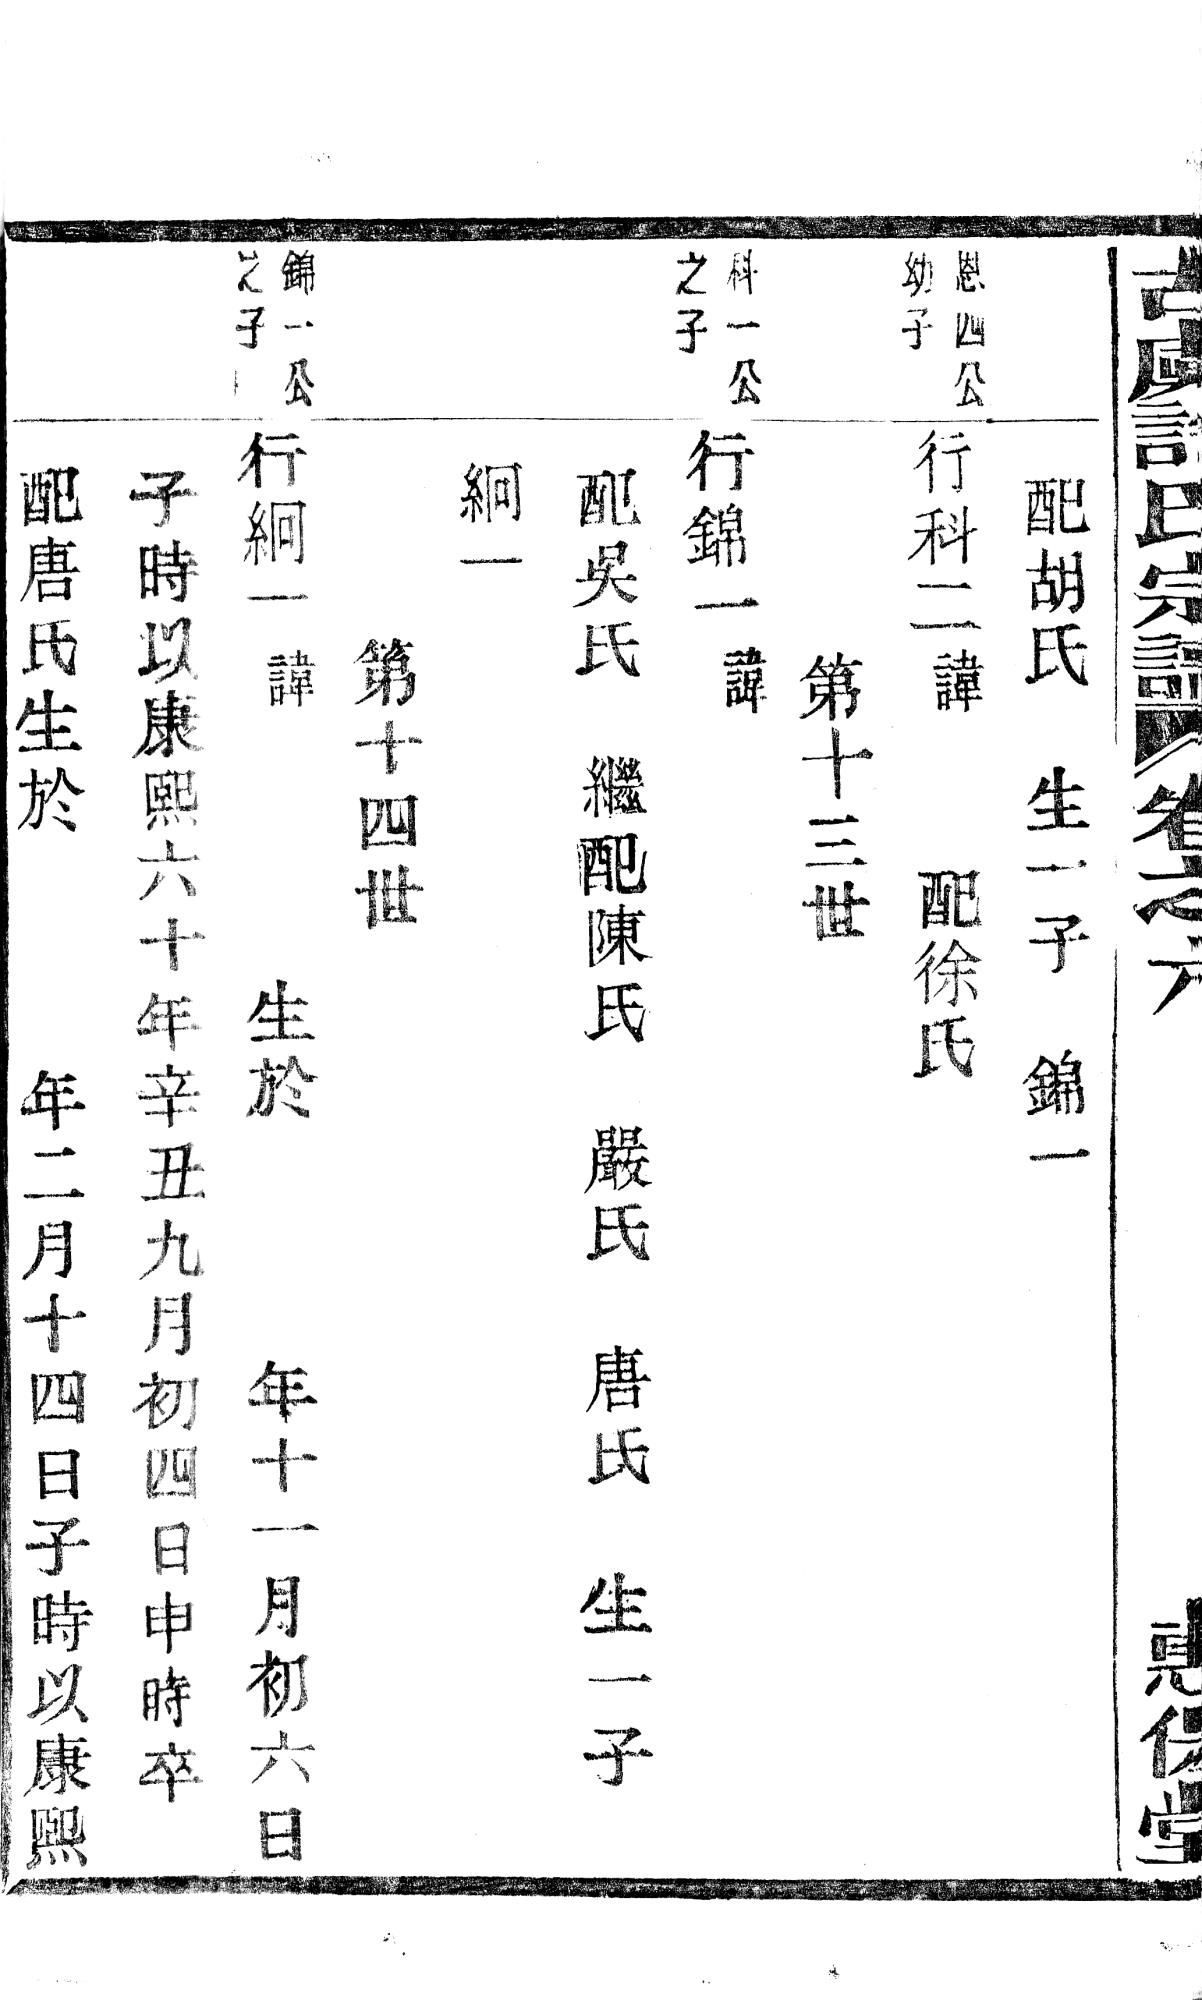 氏宗譜 卷之六
配胡氏 生一子 錦一
恩四公
幼子
行科二諱 配徐氏
第十三世
科一公
之子
行錦一諱
配吳氏 繼配陳氏 嚴氏 唐氏 生一子
絅一
第十四世
錦一公
之子
行絅一諱 生於 年十一月初六日
子時以康熙六十年辛丑九月初四日申時卒
配唐氏生於 年二月十四日子時以康熙